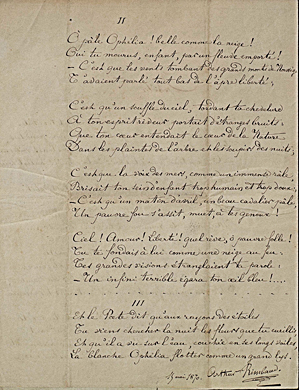 II
O pâle Ophélia ! belle comme la neige !
Oui tu mourus, enfant, par un fleuve emporté !
– C'est que les vents tombant des grands monts de Norwège
T'avaient parlé tout bas de l'âpre liberté ;
C'est qu'un souffle du ciel, tordant ta chevelure
A ton esprit rêveur portait d'étranges bruits ;
Que ton cœur entendait le cœur de la Nature
Dans les plaintes de l'arbre et les soupirs des nuits ;
C'est que la voix des mers, comme un immense râle,
Brisait ton sein d'enfant trop humain et trop doux ;
– C'est qu'un matin d'avril, un beau cavalier pâle,
Un pauvre fou s'assit, muet, à tes genoux !
Ciel ! Amour ! liberté ! quel rêve, ô pauvre folle !
Tu te fondais à lui comme une neige au feu :
Tes grandes visions étranglaient ta parole :
– Un infini terrible égara ton œil bleu !....
III
Et le Poète dit qu'aux rayons des étoiles
Tu viens chercher la nuit les fleurs que tu cueillis,
Et qu'il a vu sur l'eau, couchée en ses longs voiles,
La blanche Ophélia flotter comme un grand lys.
mai 1870 Arthur Rimbaud